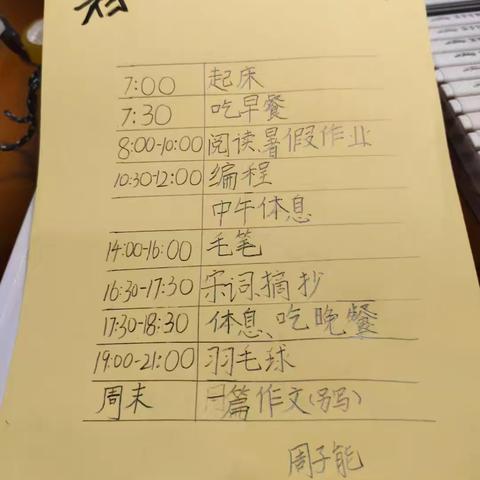 7:00 起床
7:30 吃早餐
8:00-10:00 阅读、暑假作业
10:30-12:00 编程
中午休息
14:00-16:00 毛笔
16:30-17:30 宋词摘抄
17:30-18:30 休息、吃晚餐
19:00-21:00 羽毛球
周末 一篇作文
周子能